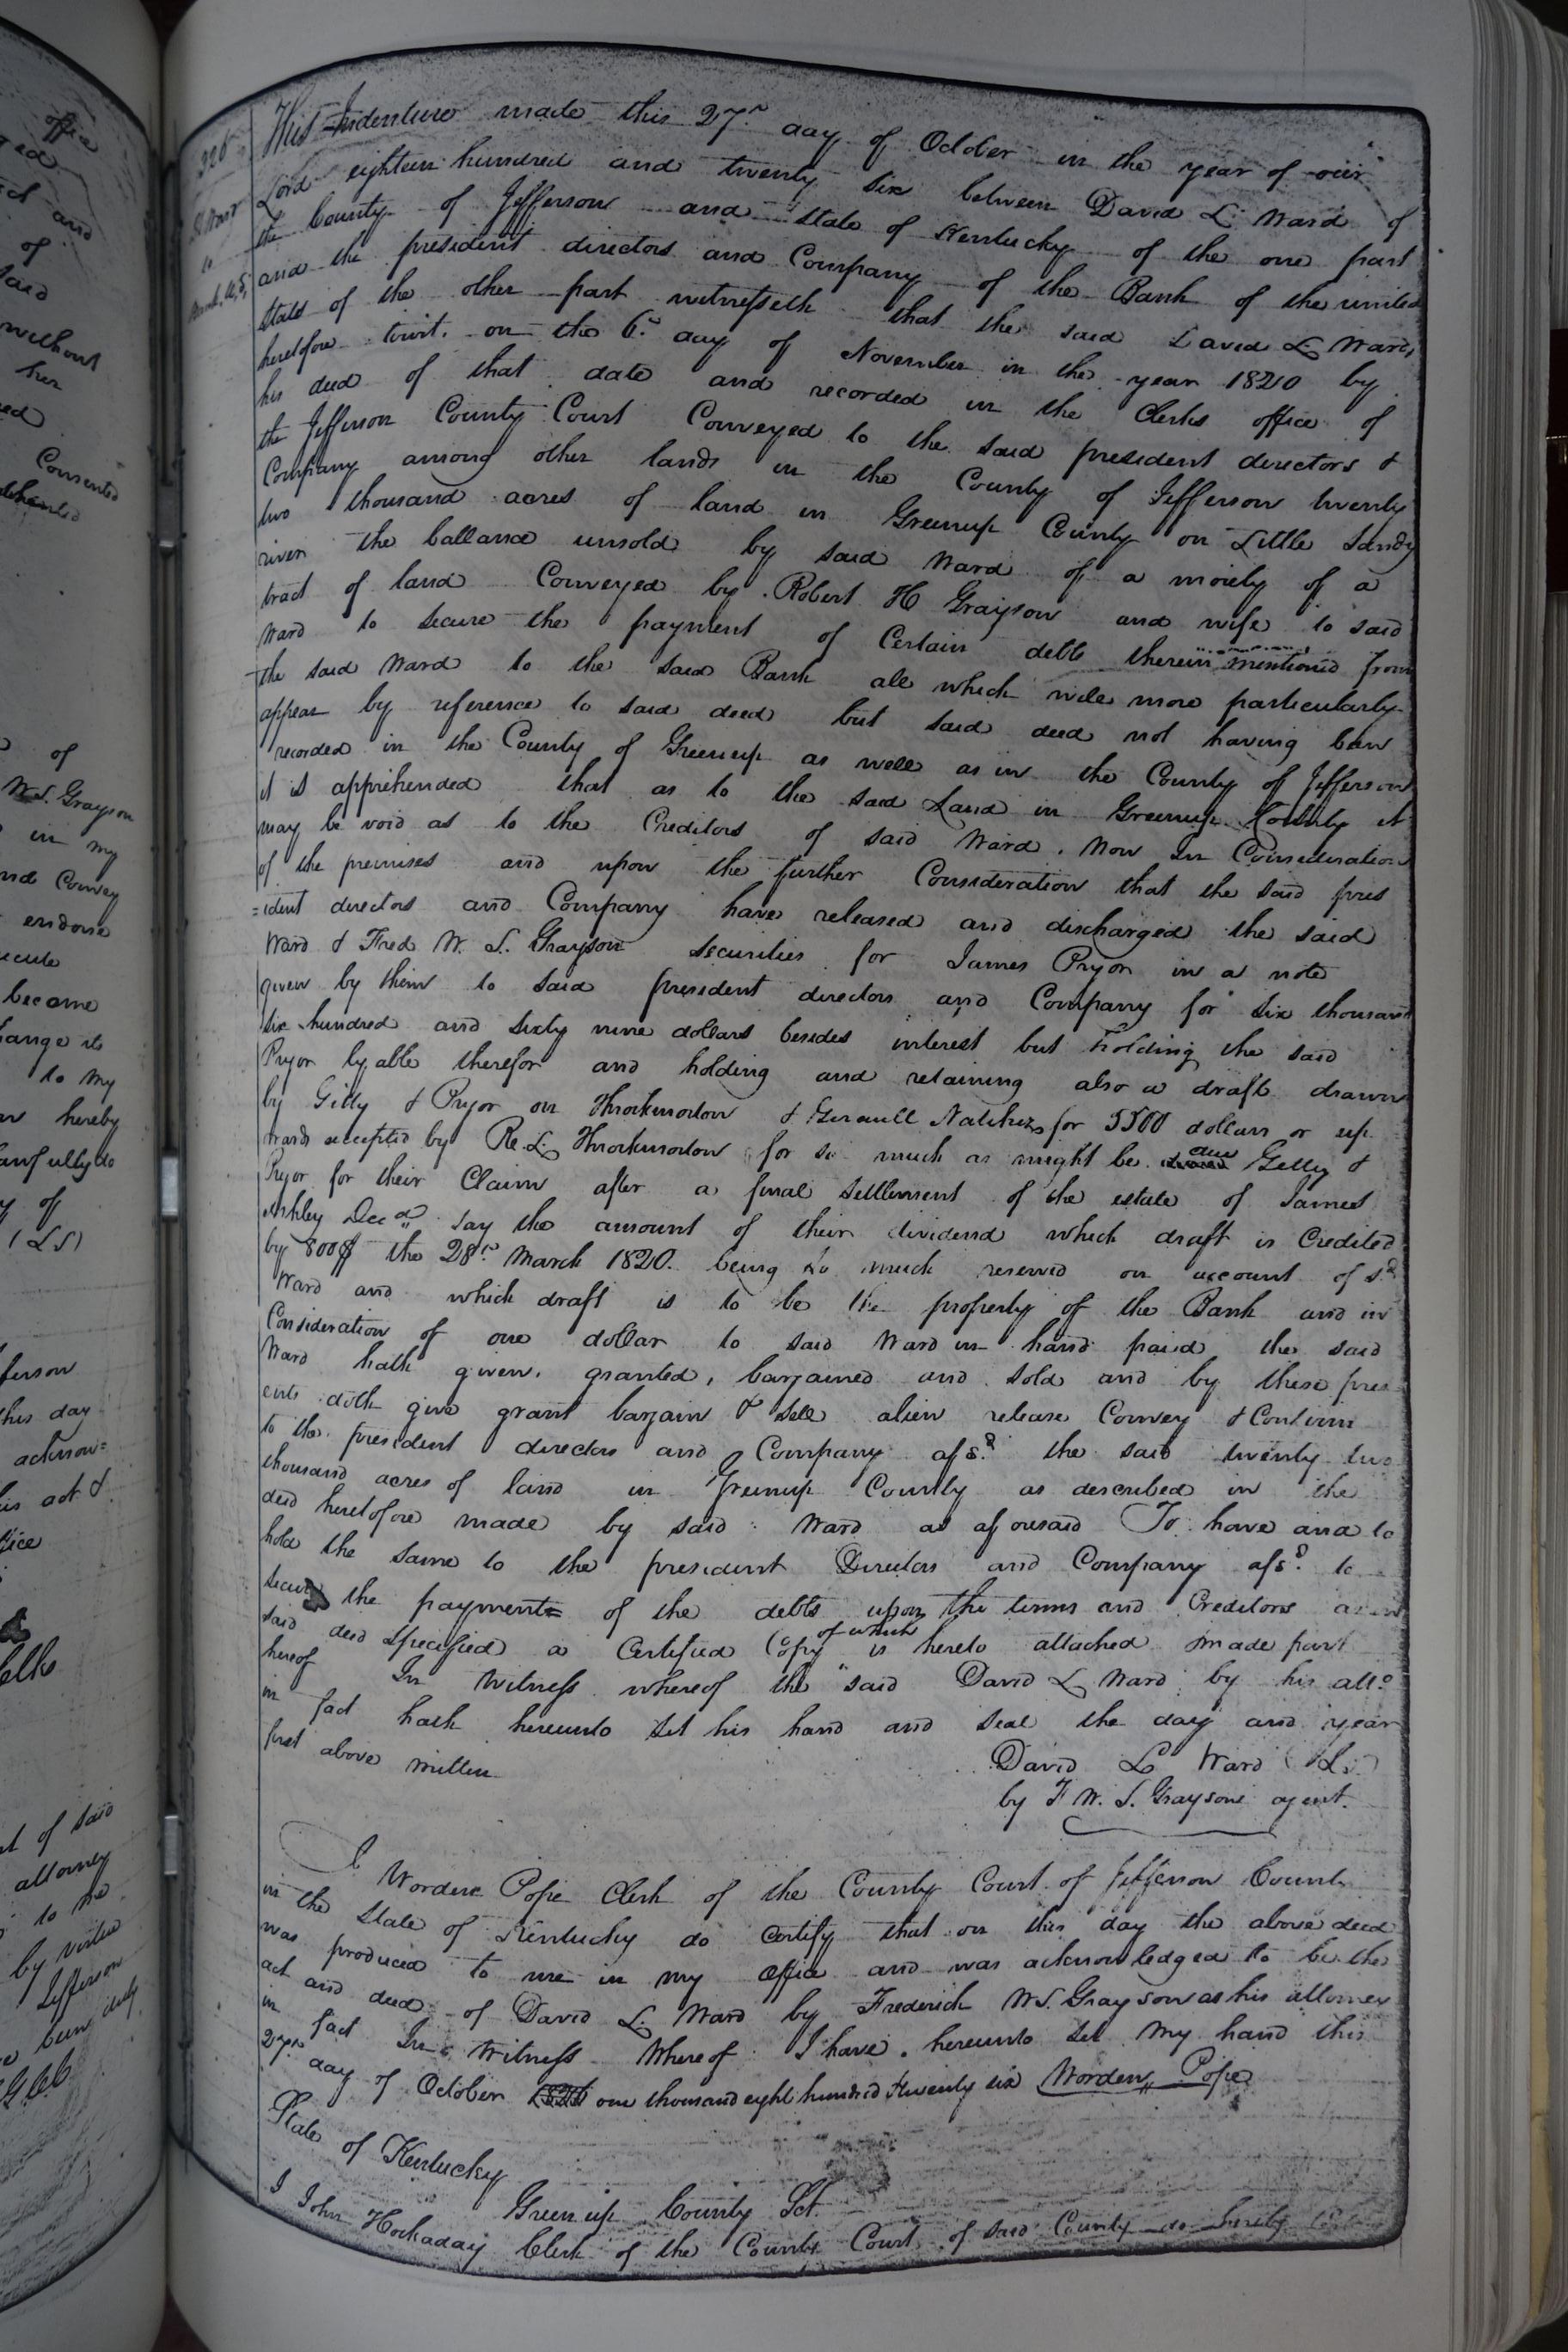 offic
ged
ect and
of
said
without
her
ed
Consented
of
W.S. Grayson
in my
and Convey
endorse
ecute
become
hange its
to my
hereby
lawfully do
of
(LS)
fferson
this day
acknow=
his act &
ffice
elks
t of said
attorney
to me
by virtue
Jefferson
been duly
326
D L Ward
to
Bank U.S.
This Indenture made this 27th day of October in the year of our
Lord eighteen hundred and twenty six between David L. Ward of
the County of Jefferson and State of Kentucky of the one part
and the president directors and Company of the Bank of the united
States of the other part witnesseth that the said David L. Ward,
heretofore towit. on the 6th day of November in the year 1820 by
his deed of that date and recorded in the Clerks office of
the Jefferson County Court Conveyed to the said president directors &
Company among other lands in the County of Jefferson twenty
two thousand acres of land in Greenup County on Little Sandy
river the ballance unsold by said Ward of a moiety of a
tract of land Conveyed by Robert H Grayson and wife to said
Ward to secure the payment of Certain debts therein mentioned from
the said Ward to the said Bank all which will more particularly
appear by reference to said deed but said deed not having been
recorded in the County of Greenup as well as in the County of Jefferson
it is apprehended that as to the said Land in Greenup County it
may be void as to the Creditors of said Ward. Now In Consideration
of the premises and upon the further Consideration that the said pres
=ident directors and Company have released and discharged the said
Ward & Fred W. S. Grayson securities for James Pryor in a note
given by them to said president directors and Company for six thousand
six hundred and sixty nine dollars besides interest but holding the said
Pryor lyable therefor and holding and retaining also a draft drawn
by Gilly & Pryor on Throckmorton & Girault Natchez for 5500 dollars or up
wards accepted by Ro. L. Throckmorton for so much as might be due Gelly &
Pryor for their Claim after a final settlement of the estate of James
Ashley Decd. say the amount of their dividend which draft is Credited
by 800$ the 28th March 1820. being so much received on account of sd
Ward and which draft is to be the property of the Bank and in
Consideration of one dollar to said Ward in hand paid the said
Ward hath given, granted, bargained and sold and by these pres
ents doth give grant bargain & sell alien release Convey & Confirm
to the president directors and Company afsd. the said twenty two
thousand acres of land in Greenup County as described in the
deed heretofore made by said Ward as aforesaid To have and to
hold the same to the president Directors and Company afsd. to
secure the payment= of the debts upon the terms and Creditors as in
said deed specified a Certified Copy of which is hereto attached made part
hereof In Witness whereof the said David L Ward by his atto
in fact hath hereunto set his hand and seal the day and year
first above written
David L Ward (L.S)
by F W. S. Grayson agent.
I Worden Pope Clerk of the County Court of Jefferson County
in the State of Kentucky do certify that on this day the above deed
was produced to me in my office and was acknowledged to be the
act and deed of David L. Ward by Frederick W.S. Grayson as his attorney
in fact In Witness Whereof I have hereunto set my hand this
27th day of October 1826 one thousand eight hundred & twenty six Worden Pope
State of Kentucky
Greenup County Sct.
I John Hockaday Clerk of the County Court of said County do hereby